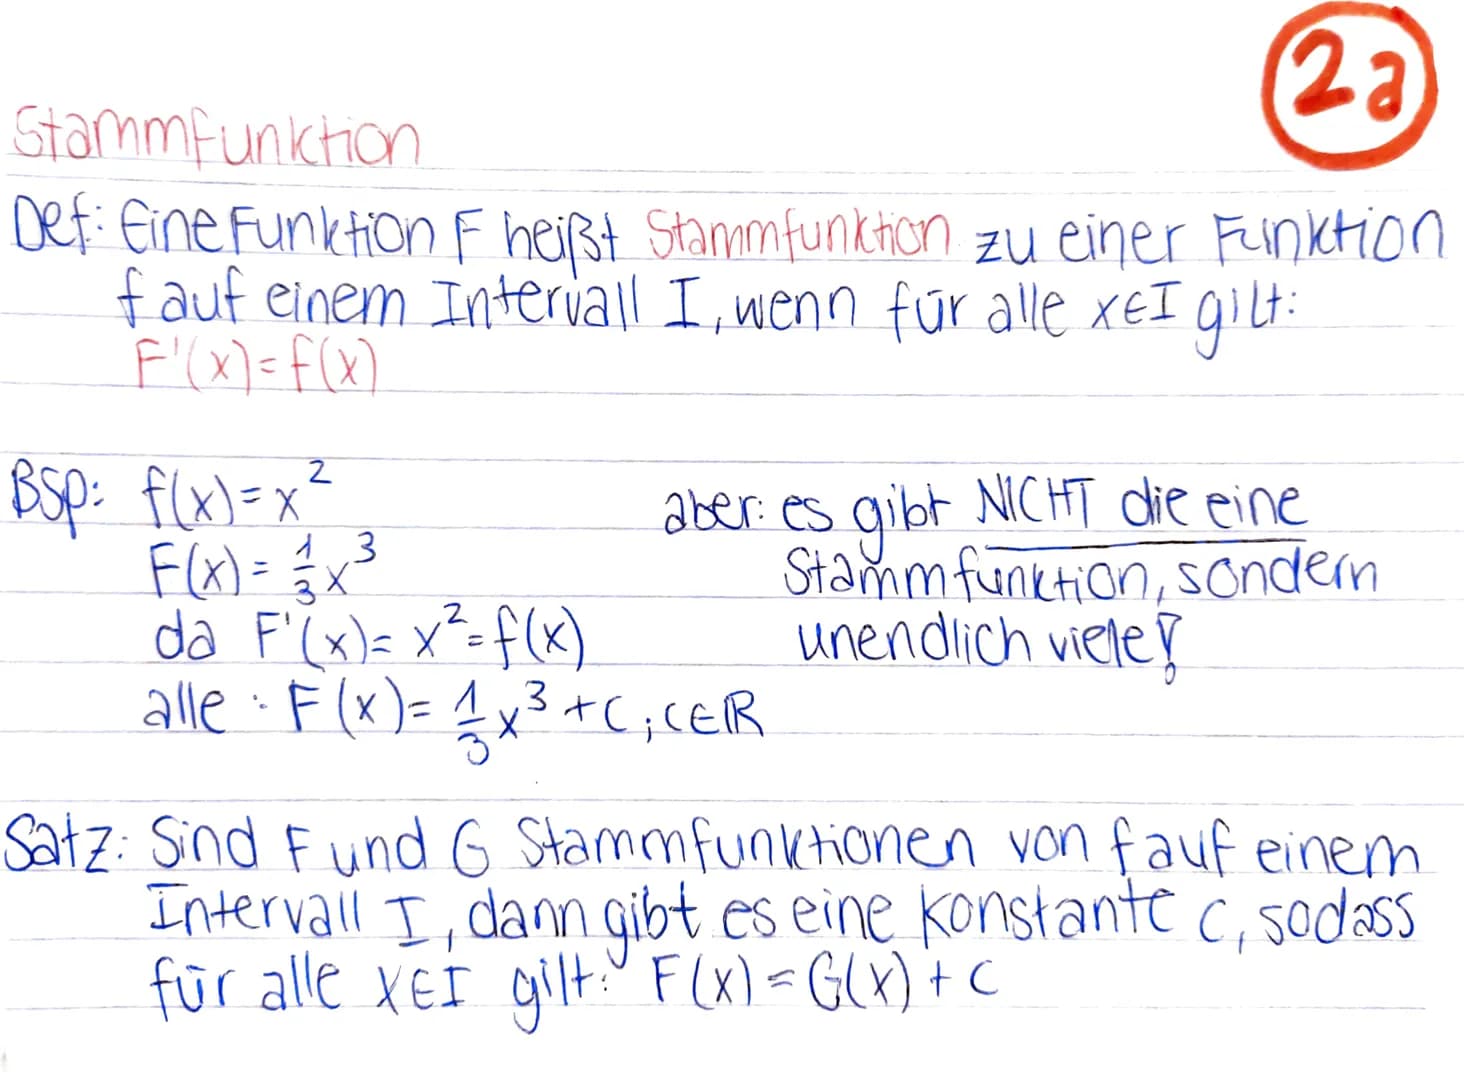 2a
Stammfunktion
Def: Eine Funktion F heißt Stammfunktion zu einer Funktion
f auf einem Intervall I, wenn für alle x∈I gilt:
F'(x)=f(x)
Bsp: f(x)=x²
F(x)=⅓x³
da F'(x)=x²=f(x)
alle: F(x)=⅓x³+c; c∈ℝ
aber: es gibt NICHT die eine
Stammfunktion, sondern
unendlich viele!
Satz: Sind F und G Stammfunktionen von f auf einem
Intervall I, dann gibt es eine Konstante c, sodass
für alle x∈I gilt: F(x)=G(x)+c